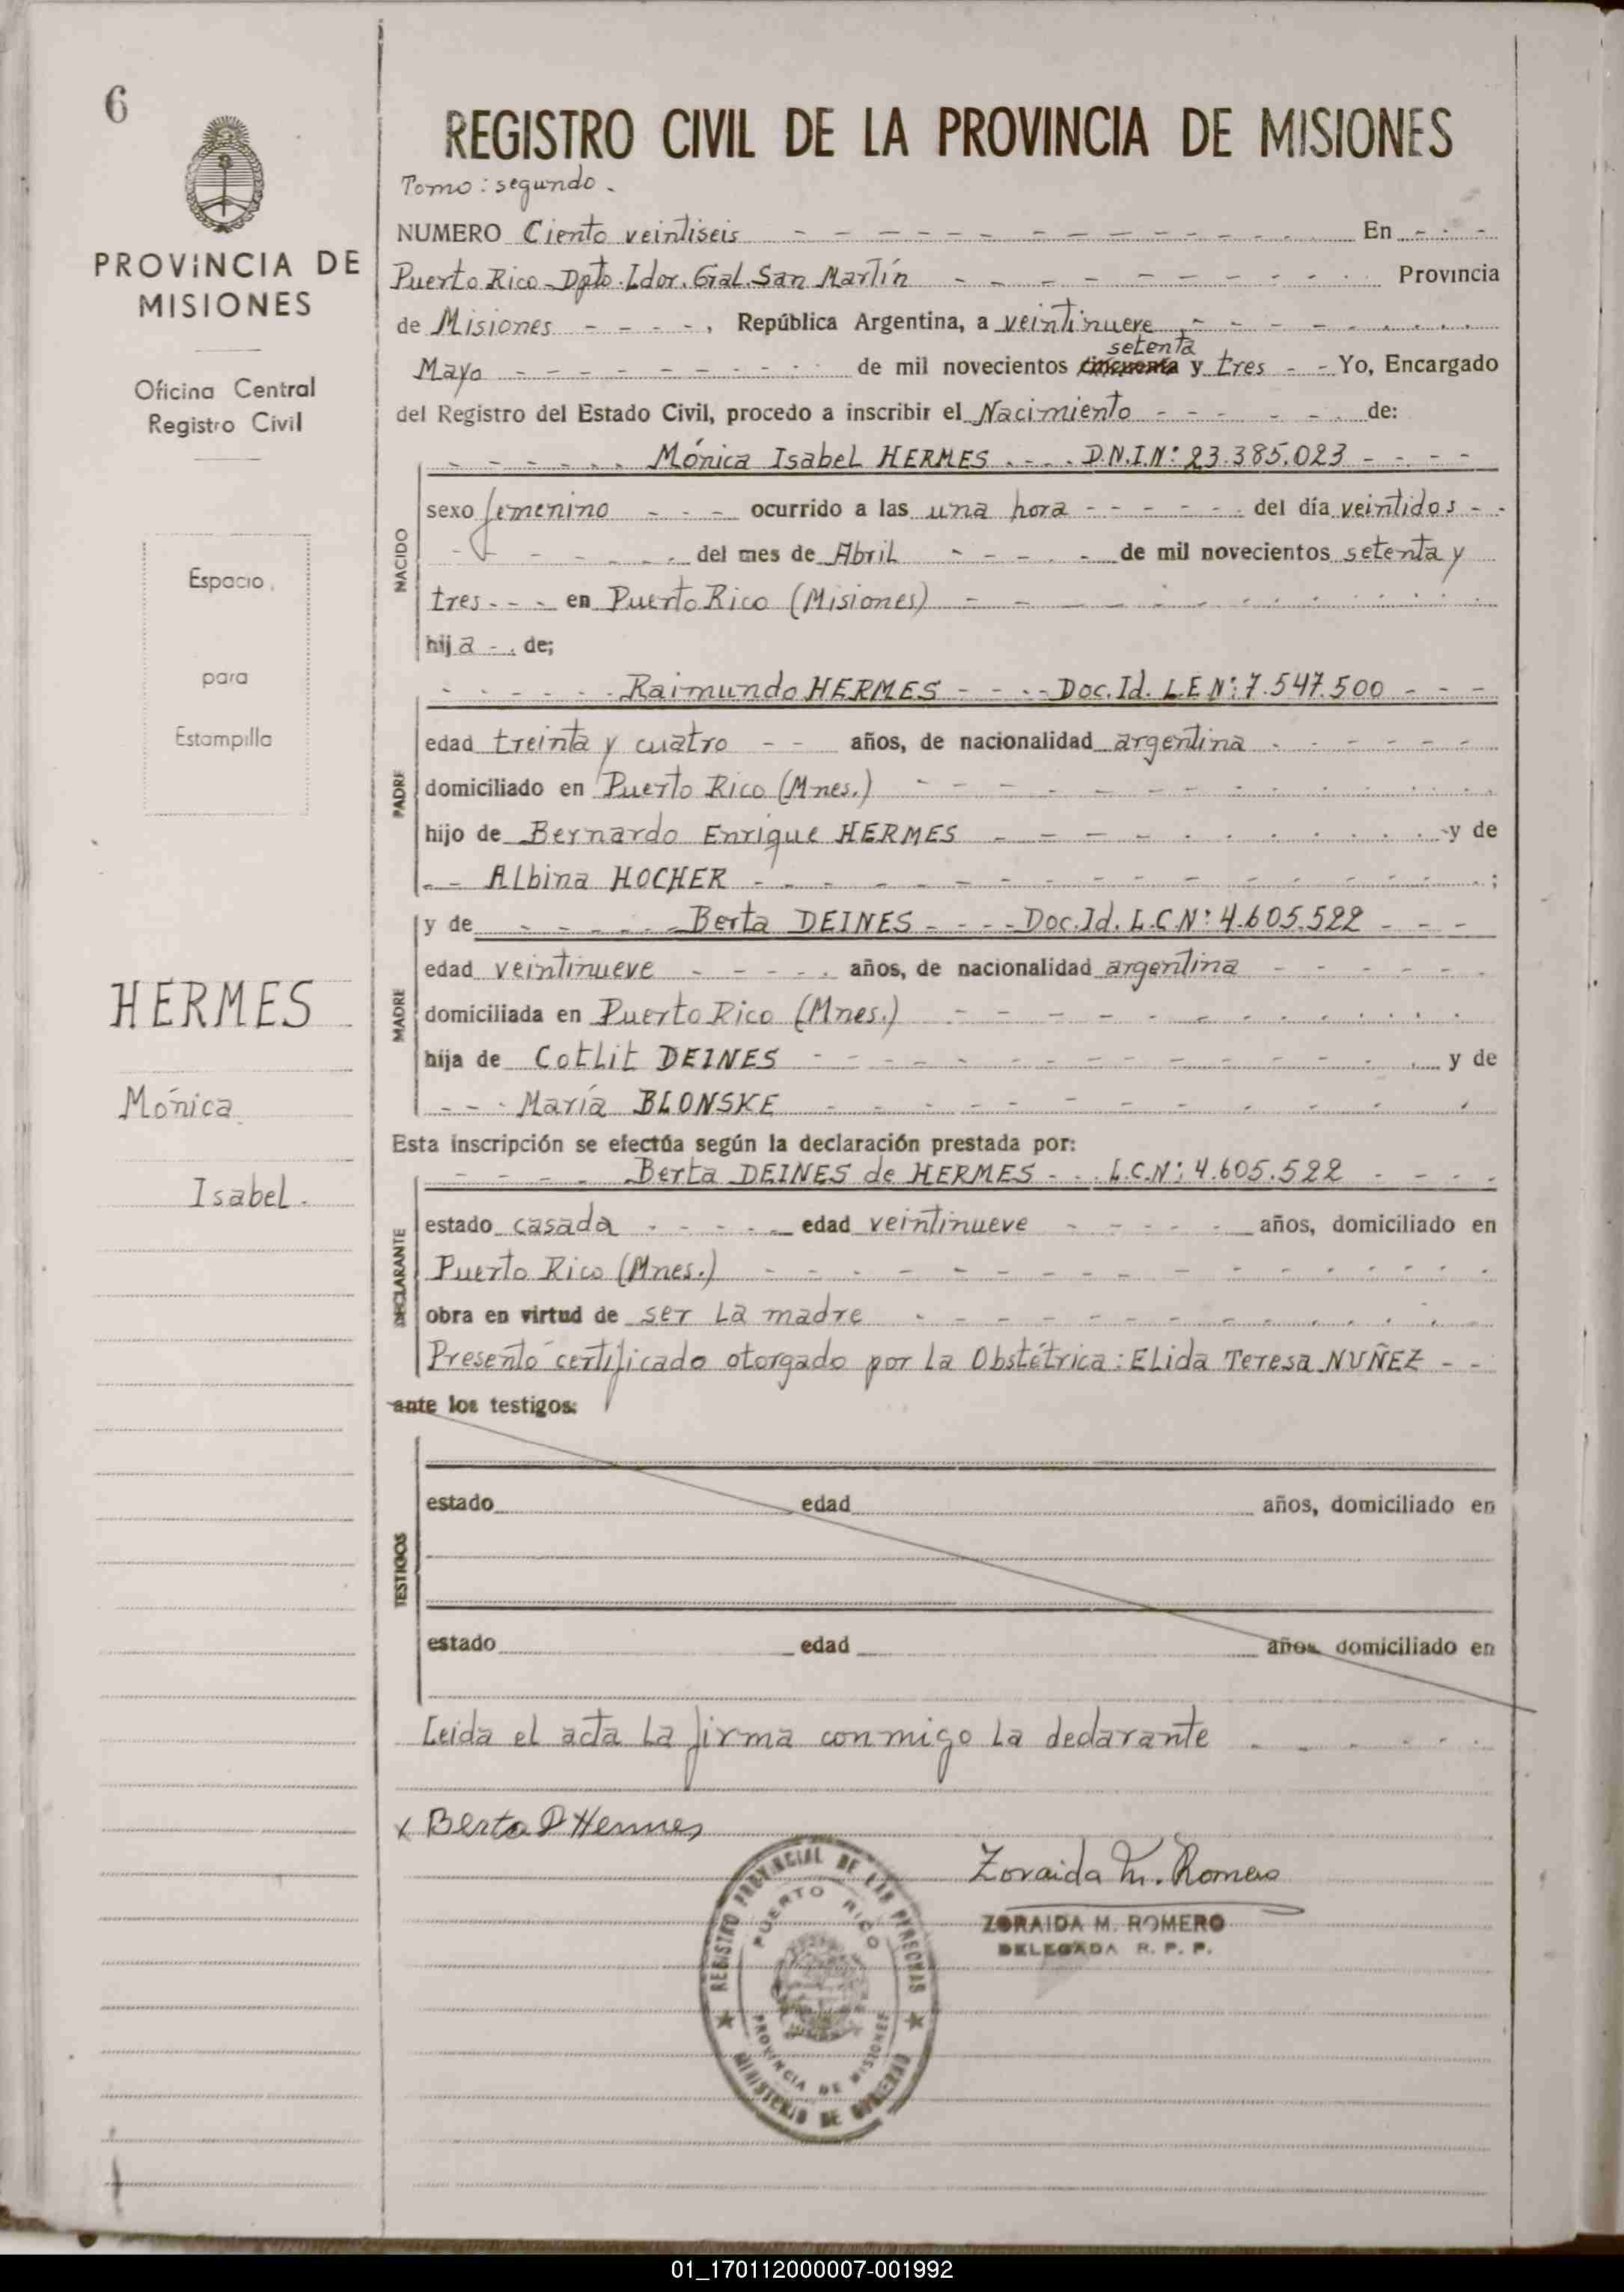 6
PROVINCIA DE
MISIONES
Oficina Central
Registro Civil
Espacio
para
Estampilla
HERMES
Mónica
Isabel.
REGISTRO CIVIL DE LA PROVINCIA DE MISIONES
Tomo: segundo.
NUMERO Ciento veintiseis En
Puerto Rico - Dpto. Ldor. Gral. San Martín Provincia
de Misiones, República Argentina, a veintinueve
setenta
Mayo de mil novecientos cincuenta y tres Yo, Encargado
del Registro del Estado Civil, procedo a inscribir el Nacimiento de:
Mónica Isabel HERMES D.N.I.Nº 23.385.023
NACIDO
sexo femenino ocurrido a las una hora del día veintidos
del mes de Abril de mil novecientos setenta y
tres en Puerto Rico (Misiones)
hija de;
Raimundo HERMES Doc. Id. L.E Nº: 7.547.500
PADRE
edad treinta y cuatro años, de nacionalidad argentina
domiciliado en Puerto Rico (Mnes.)
hijo de Bernardo Enrique HERMES y de
Albina HOCHER ;
MADRE
y de Berta DEINES Doc. Id. L.C Nº: 4.605.522
edad veintinueve años, de nacionalidad argentina
domiciliada en Puerto Rico (Mnes.)
hija de Cotlit DEINES y de
María BLONSKE
Esta inscripción se efectúa según la declaración prestada por:
Berta DEINES de HERMES L.C.Nº: 4.605.522
DECLARANTE
estado casada edad veintinueve años, domiciliado en
Puerto Rico (Mnes.)
obra en virtud de ser la madre
Presentó certificado otorgado por la Obstétrica: Elida Teresa NUÑEZ
ante los testigos:
TESTIGOS
estado edad años, domiciliado en
estado edad años, domiciliado en
Leida el acta la firma conmigo la declarante
x Berta D Hermes
Zoraida M. Romero
ZORAIDA M. ROMERO
DELEGADA R. P. P.
REGISTRO PROVINCIAL DE LAS PERSONAS
PUERTO RICO
PROVINCIA DE MISIONES
MINISTERIO DE GOBIERNO
01_170112000007-001992